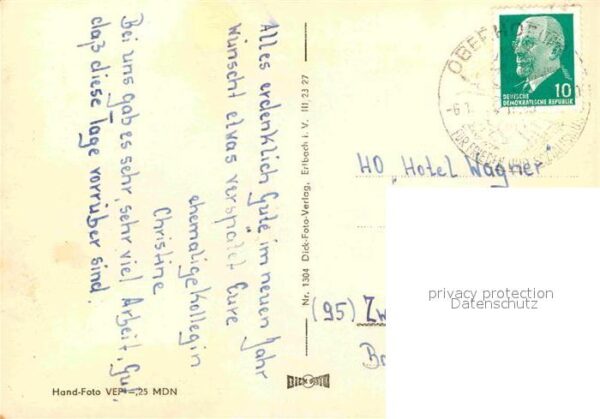 Alles erdenklich Gute im neuen Jahr
wünscht etwas verspätet Eure
ehemalige Kollegin
Christine
Bei uns gab es sehr, sehr viel Arbeit, Gut
daß diese Tage vorrüber sind.
Hand-Foto VEP -,25 MDN
Nr. 1304 Dick-Foto-Verlag, Erlbach i. V. III 23 27
DICK FOTO
OBERHOF
-6.1.
10
DEUTSCHE
DEMOKRATISCHE REPUBLIK
HO „Hotel Wagner"
(95) Zw
privacy protection
Datenschutz